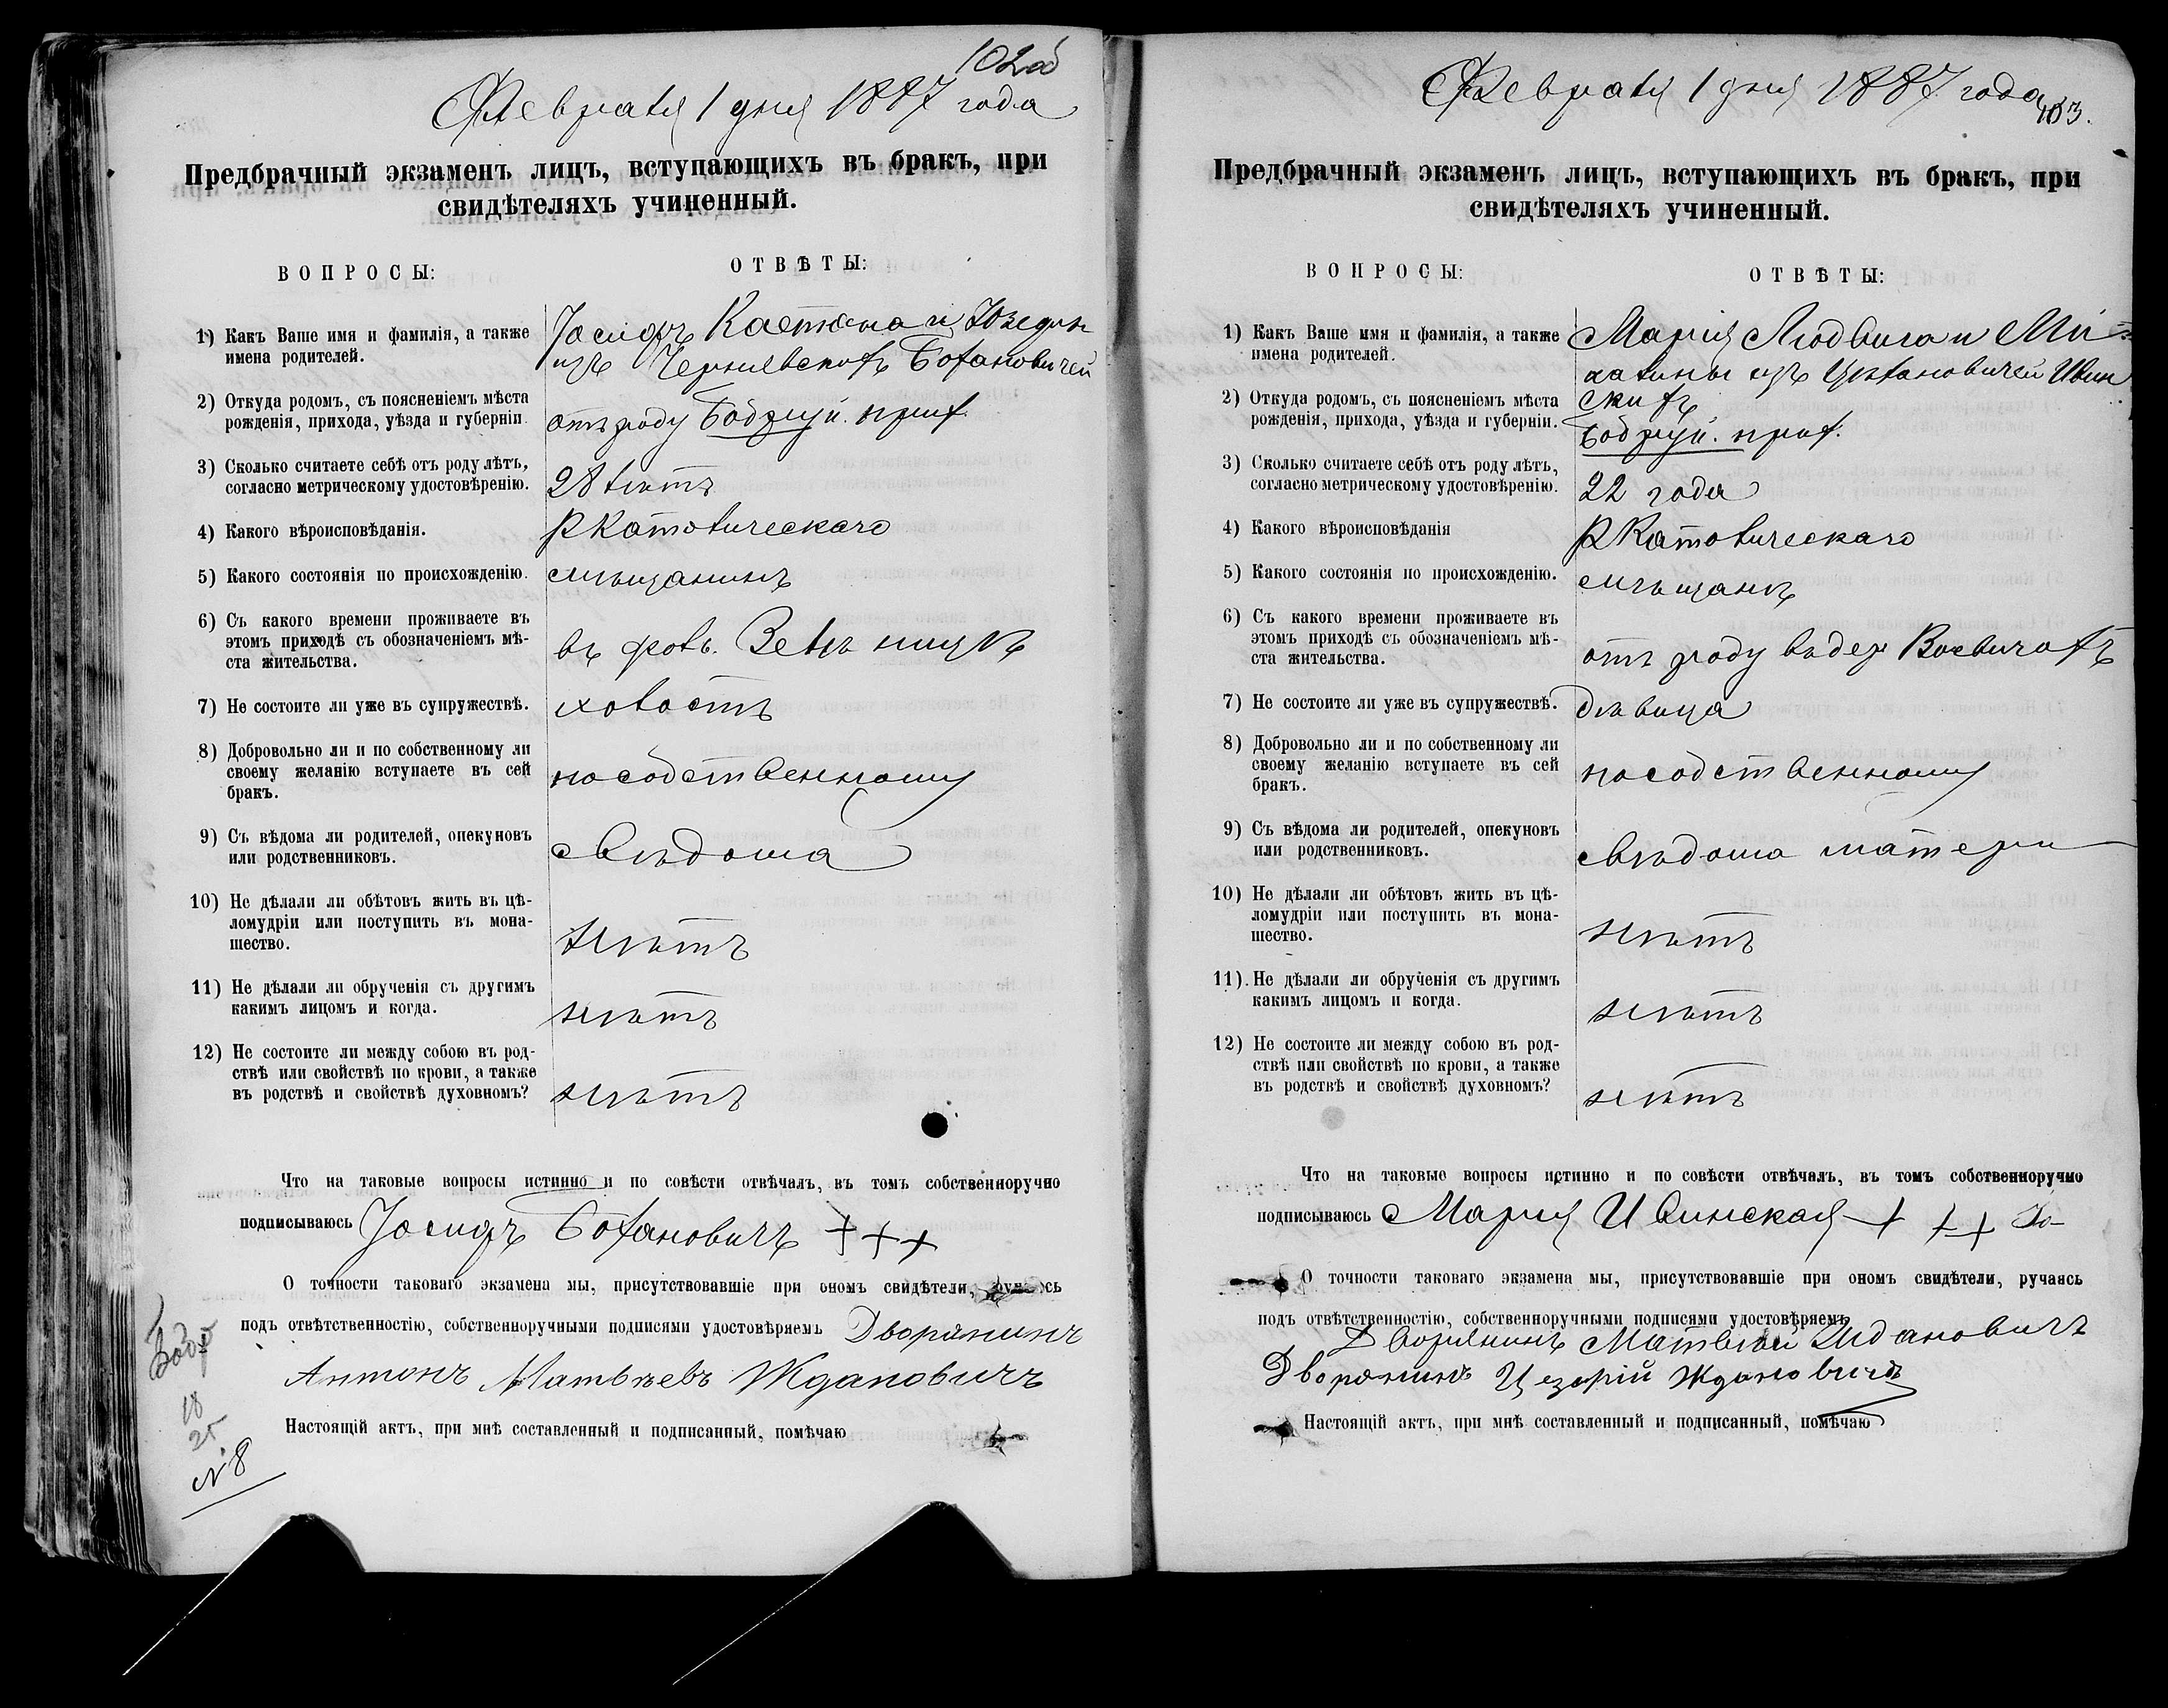 102об
Февраля 1 дня 1887 года
Предбрачный экзаменъ лицъ, вступающихъ въ бракъ, при
свидѣтеляхъ учиненный.
ВОПРОСЫ:
ОТВѢТЫ:
1) Какъ Ваше имя и фамилія, а также
имена родителей.
Іосифъ Каетана и Юзефы
изъ Чернявскихъ Бохановичей
2) Откуда родомъ, съ поясненіемъ мѣста
рожденія, прихода, уѣзда и губерніи.
отъ роду Бобруй. прих.
3) Сколько считаете себѣ отъ роду лѣтъ,
согласно метрическому удостовѣренію.
28 лѣтъ
4) Какого вѣроисповѣданія.
РКатолическаго
5) Какого состоянія по происхожденію.
мѣщанинъ
6) Съ какого времени проживаете въ
этомъ приходѣ съ обозначеніемъ мѣ-
ста жительства.
въ фольв.
7) Не состоите ли уже въ супружествѣ.
холостъ
8) Добровольно ли и по собственному ли
своему желанію вступаете въ сей
бракъ.
по собственному
9) Съ вѣдома ли родителей, опекуновъ
или родственниковъ.
свѣдома
10) Не дѣлали ли обѣтовъ жить въ цѣ-
ломудріи или поступить въ мона-
шество.
нѣтъ
11) Не дѣлали ли обрученія съ другимъ
какимъ лицомъ и когда.
нѣтъ
12) Не состоите ли между собою въ род-
ствѣ или свойствѣ по крови, а также
въ родствѣ и свойствѣ духовномъ?
нѣтъ
Что на таковые вопросы истинно и по совѣсти отвѣчалъ, въ томъ собственноручно
подписываюсь Іосифъ Боханович +++
О точности таковаго экзамена мы, присутствовавшіе при ономъ свидѣтели,
подъ отвѣтственностію, собственноручными подписями удостовѣряемъ Дворянинъ
Антонъ Матвѣевъ Ждановичъ
Настоящій актъ, при мнѣ составленный и подписанный, помѣчаю
18
25
№8
103.
Февраля 1 дня 1887 года
Предбрачный экзаменъ лицъ, вступающихъ въ бракъ, при
свидѣтеляхъ учиненный.
ВОПРОСЫ:
ОТВѢТЫ:
1) Какъ Ваше имя и фамилія, а также
имена родителей.
Марія Людвига и Ми-
халины изъ Цехановичей Ивин
скихъ
2) Откуда родомъ, съ поясненіемъ мѣста
рожденія, прихода, уѣзда и губерніи.
Бобруй. прих.
3) Сколько считаете себѣ отъ роду лѣтъ,
согласно метрическому удостовѣренію.
22 года
4) Какого вѣроисповѣданія
РКатолическаго
5) Какого состоянія по происхожденію.
мѣщанк
6) Съ какого времени проживаете въ
этомъ приходѣ съ обозначеніемъ мѣ-
ста жительства.
отъ роду въ дер
7) Не состоите ли уже въ супружествѣ.
дѣвица
8) Добровольно ли и по собственному ли
своему желанію вступаете въ сей
бракъ.
по собственному
9) Съ вѣдома ли родителей, опекуновъ
или родственниковъ.
свѣдома матери
10) Не дѣлали ли обѣтовъ жить въ цѣ-
ломудріи или поступить въ мона-
шество.
нѣтъ
11). Не дѣлали ли обрученія съ другимъ
какимъ лицомъ и когда.
нѣтъ
12) Не состоите ли между собою въ род-
ствѣ или свойствѣ по крови, а также
въ родствѣ и свойствѣ духовномъ?
нѣтъ
Что на таковые вопросы истинно и по совѣсти отвѣчалъ, въ томъ собственноручно
подписываюсь Марія Ивинская + ++
О точности таковаго экзамена мы, присутствовавшіе при ономъ свидѣтели, ручаясь
подъ отвѣтственностію, собственноручными подписями удостовѣряемъ
Дворянинъ Матвѣй Ждановичъ
Дворянинъ Цезарій Ждановичъ
Настоящій актъ, при мнѣ составленный и подписанный, помѣчаю